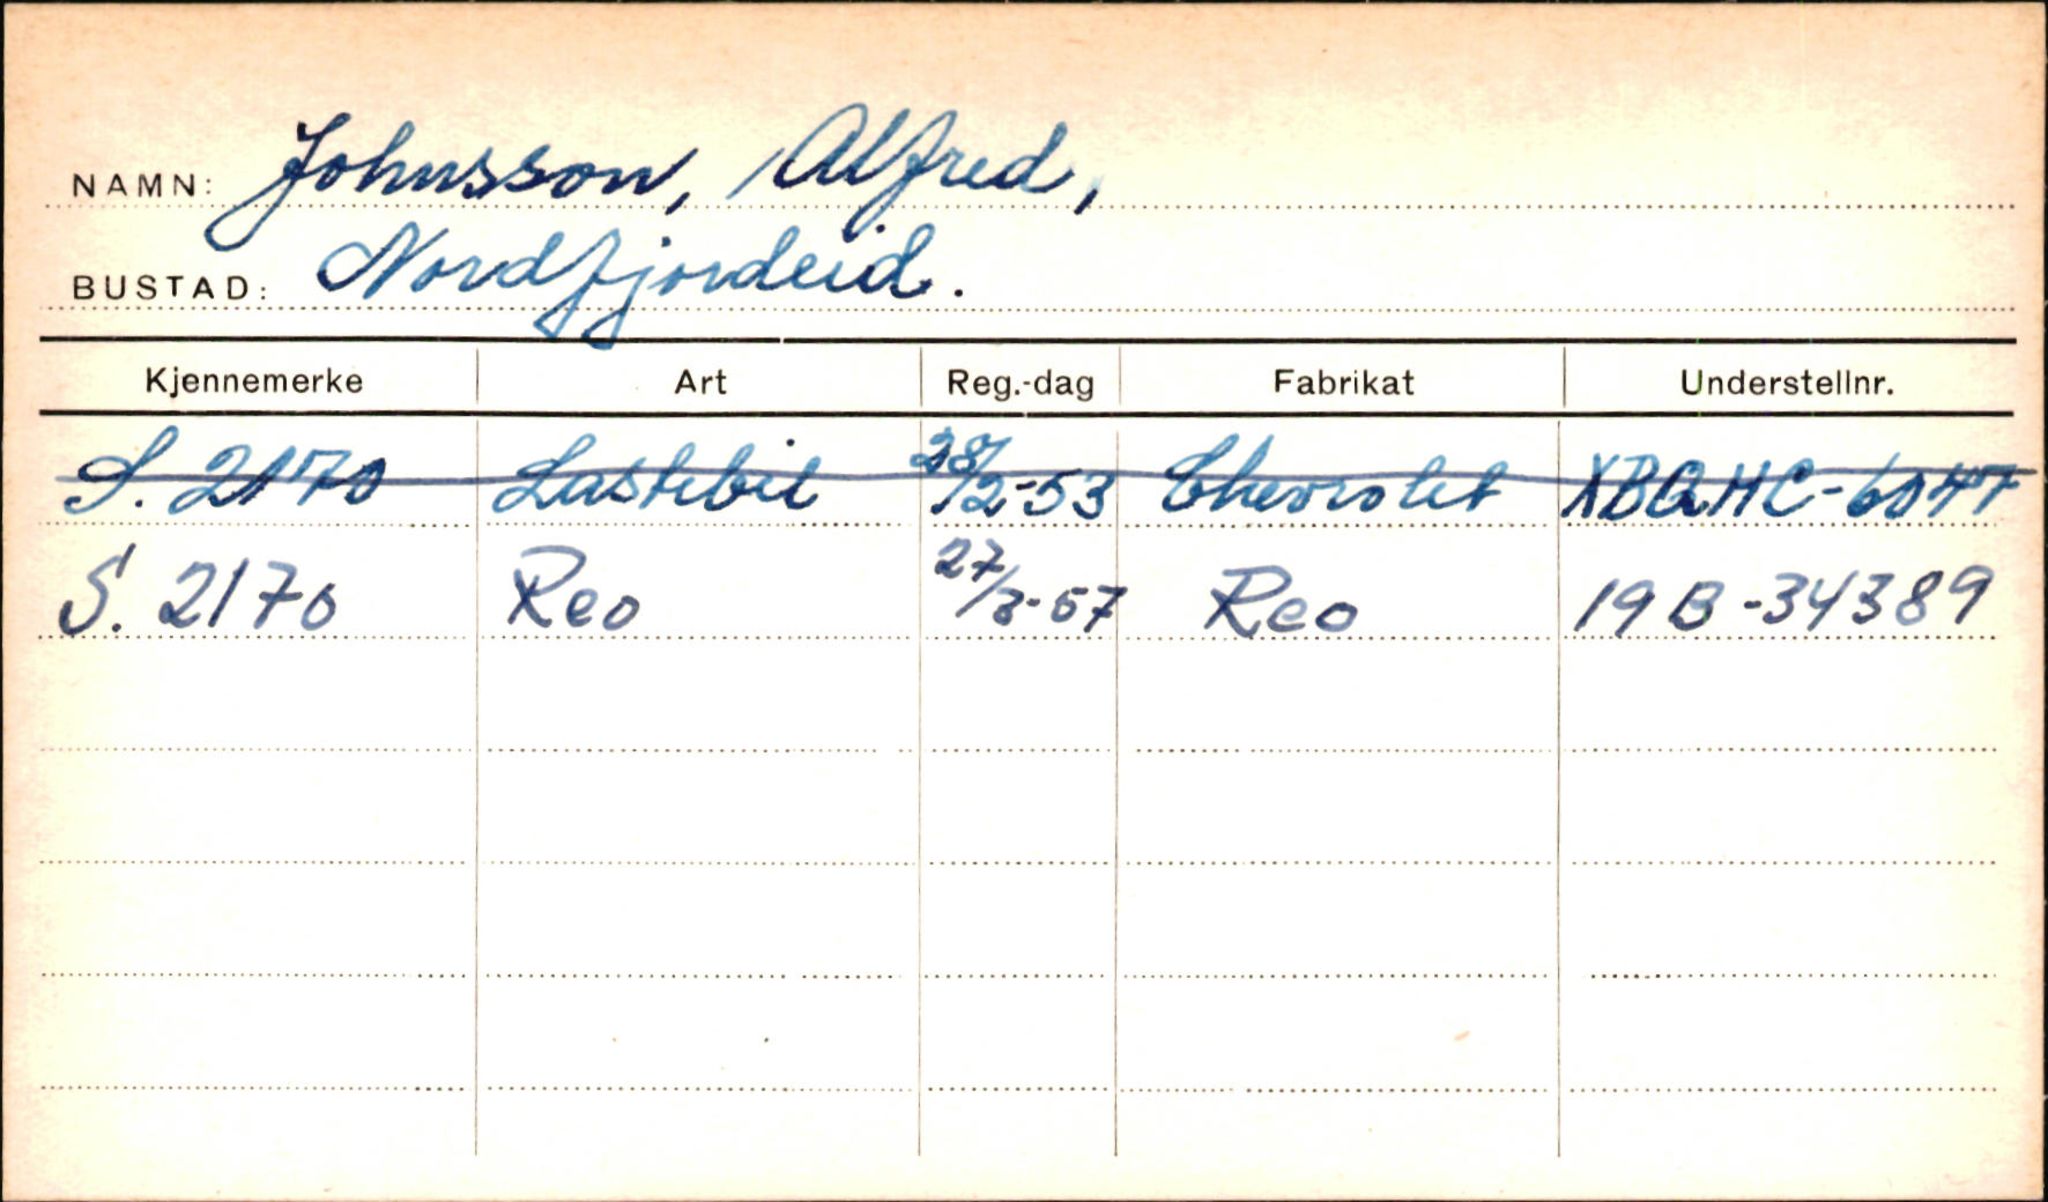 NAMN: Johnsson, Alfred,
BUSTAD: Nordfjordeid.
Kjennemerke Art Reg.-dag Fabrikat Understellnr.
S. 2170 Lastebil 28/2-53 Chevrolet XBQHC-6047
S. 2170 Reo 27/3-57 Reo 19B-34389